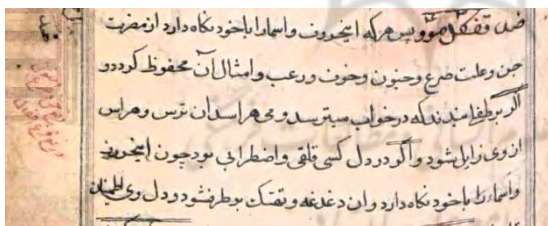 پس هرکه اینحروف و اسما را با خود نگاه دارد از مضرت
جن و علت صرع و جنون و خوف و رعب و امثال آن محفوظ گردد و
اگر بر طفلی بندند که در خواب میترسد و می هراسد آن ترس و هراس
از وی زایل شود و اگر در دل کسی قلقی و اضطرابی بود چون اینحروف
و اسما را با خود نگاه دارد و ان دغدغه و تفتک برطرف شود و دل وی